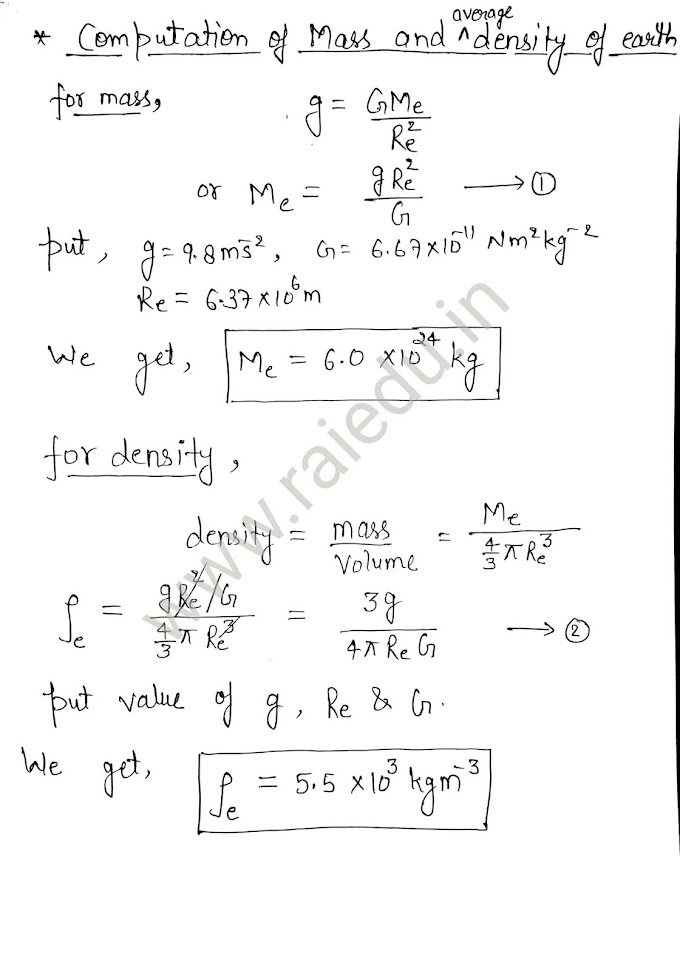 * Computation of Mass and ^average density of earth
for mass, g = GMe/Re²
or Me = gRe²/G ⟶ ①
put, g = 9.8ms⁻², G = 6.67×10⁻¹¹ Nm²kg⁻²
Re = 6.37×10⁶m
We get, Me = 6.0 ×10²⁴ kg
for density,
density = mass/volume = Me/(4/3 π Re³)
ρe = (gRe²/G)/(4/3 π Re³) = 3g/(4π Re G) ⟶ ②
put value of g, Re & G.
We get, ρe = 5.5 ×10³ kgm⁻³
www.raiedu.in